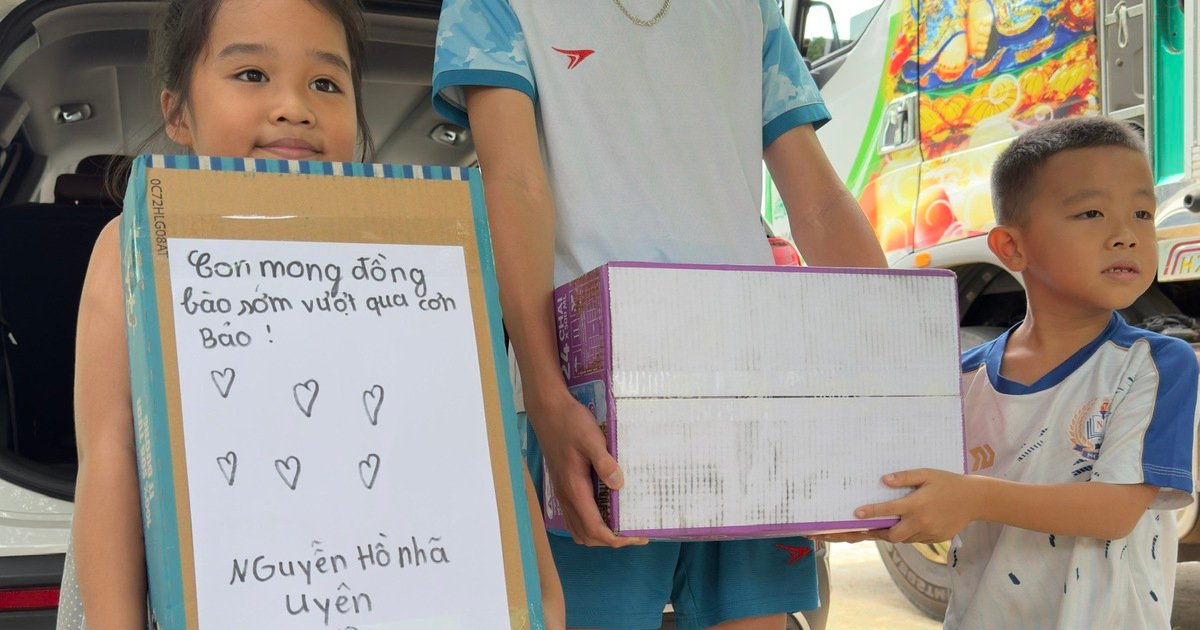 0C72HLG08AT
Con mong đồng
bào sớm vượt qua cơn
Bão !
Nguyễn Hồ nhã
Uyên
24 CHAI